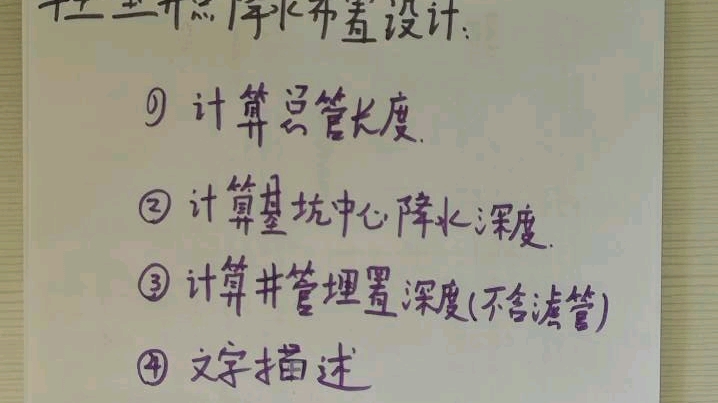 轻型井点降水布置设计:
① 计算总管长度.
② 计算基坑中心降水深度.
③ 计算井管埋置深度(不含滤管)
④ 文字描述